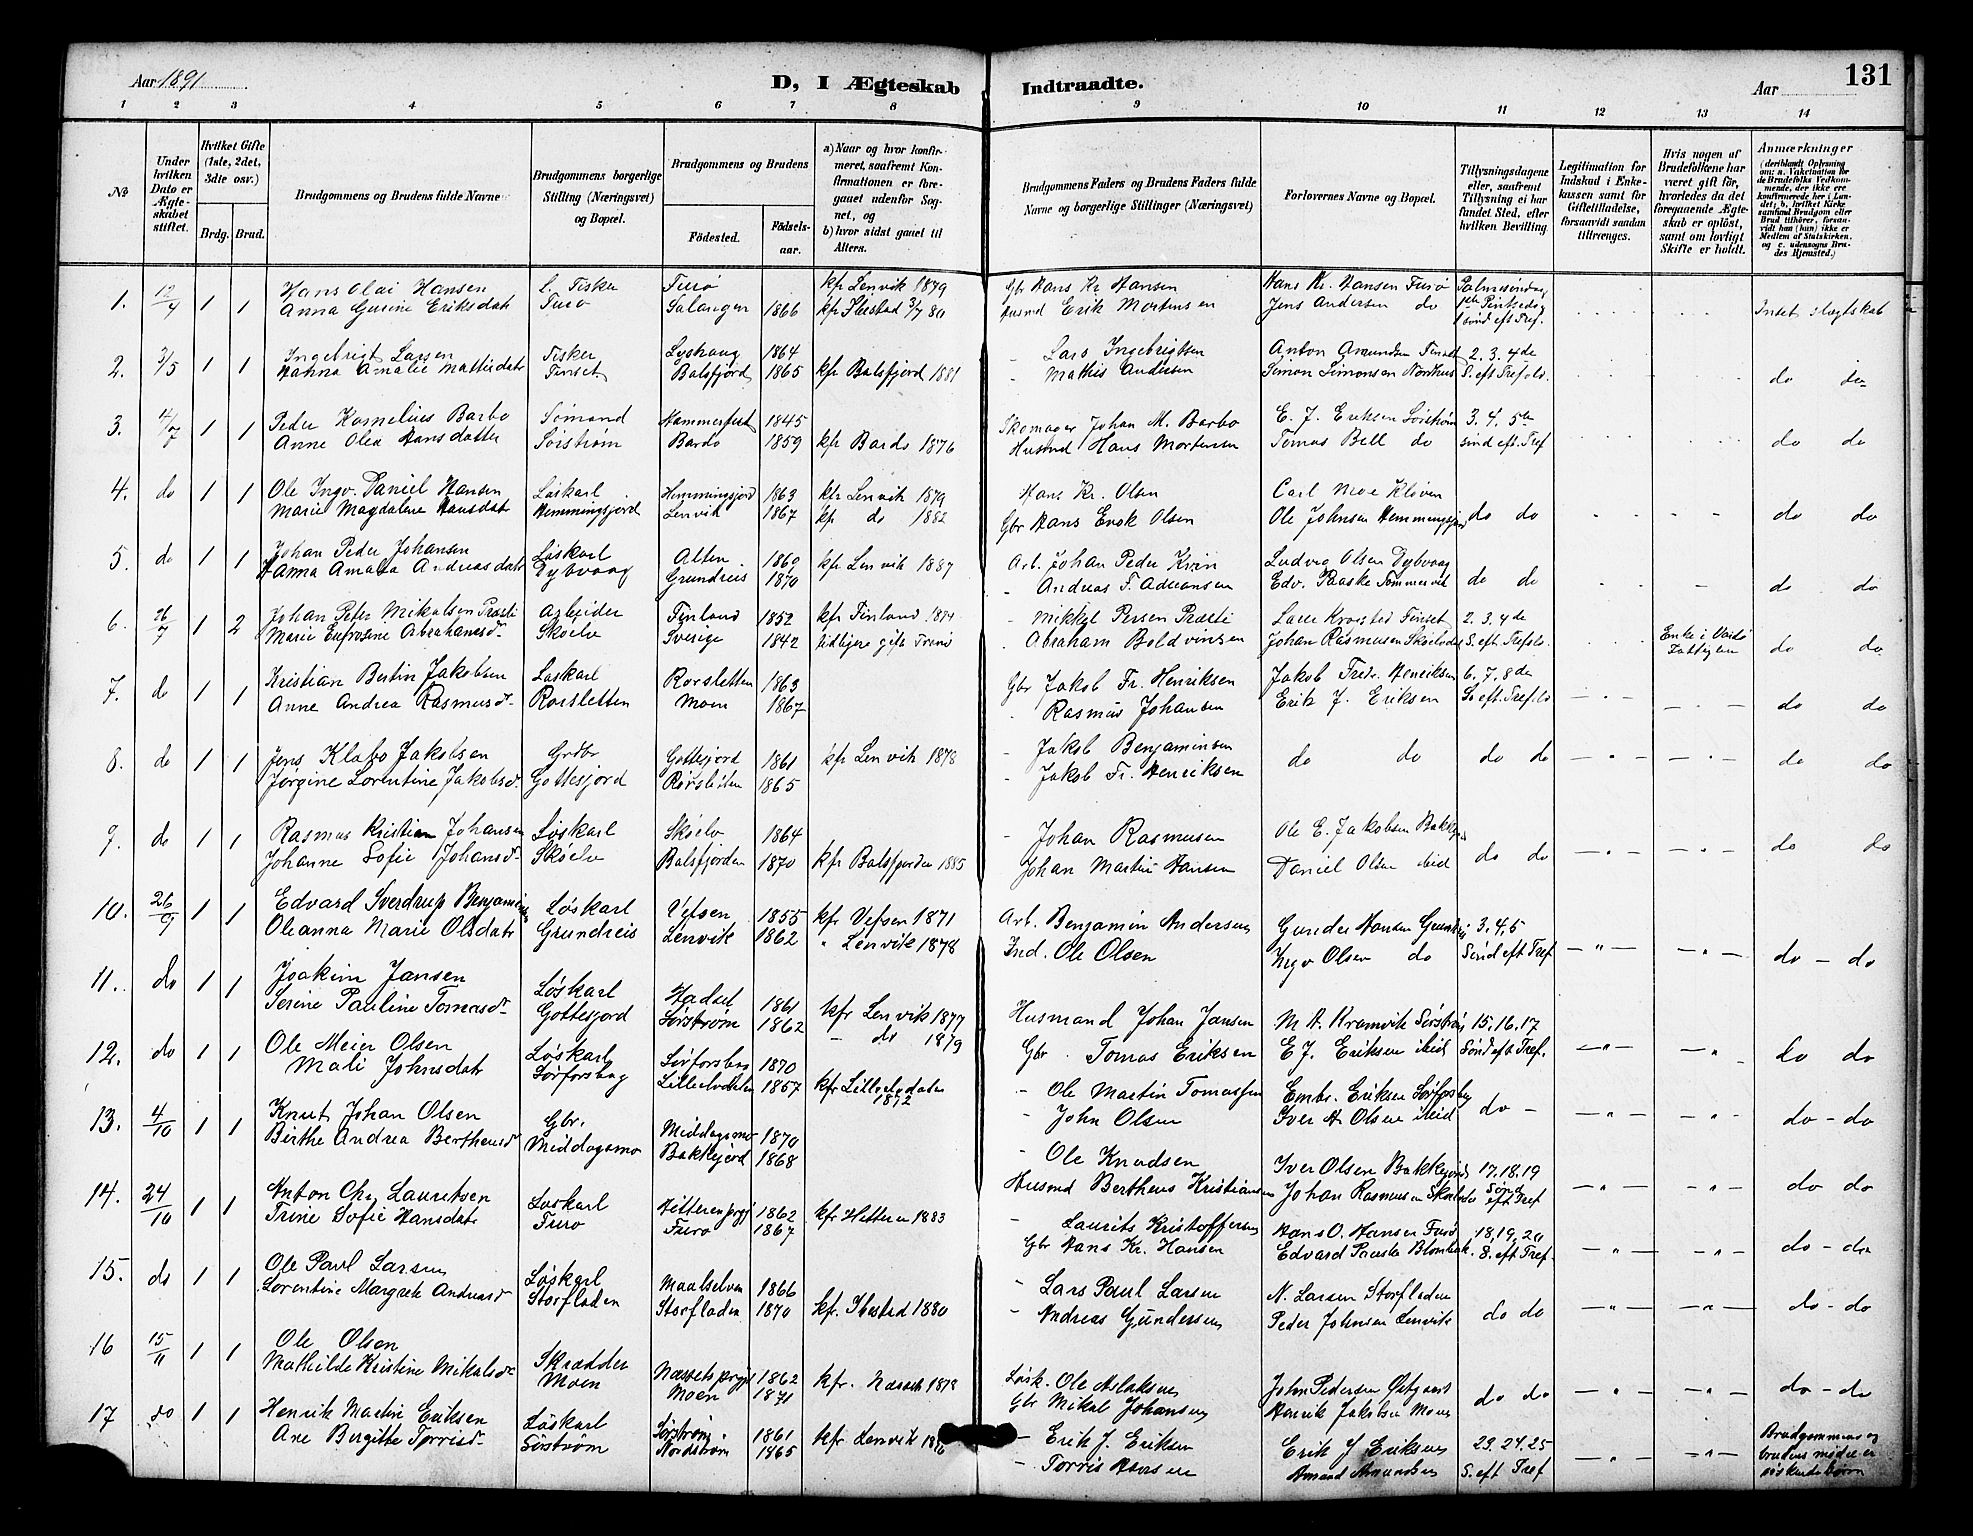 Aar 1891
D, I Ægteskab Indtraadte.
Aar
131
1 2 3 4 5 6 7 8 9 10 11 12 13 14
No
Under hvilken Dato er Ægteskabet stiftet.
Hvilket Gifte (1ste, 2det, 3die osv.)
Brdg. Brud.
Brudgommens og Brudens fulde Navne
Brudgommens borgerlige Stilling (Næringsvei) og Bopæl.
Brudgommens og Brudens
Fødested.
Fødselsaar.
a) Naar og hvor konfirmeret, saafremt Konfirmationen er foregaaet udenfor Sognet, og
b) hvor sidst gaaet til Alters.
Brudgommens Faders og Brudens Faders fulde Navne og borgerlige Stillinger (Næringsvei)
Forlovernes Navne og Bopæl.
Tillysningsdagene eller, saafremt Tillysning ei har fundet Sted, efter hvilken Bevilling.
Legitimation for Indskud i Enkekassen samt for Giftetilladelse, forsaavidt saadan tiltrænges.
Hvis nogen af Brudefolkene har været gift før, hvorledes da det foregaaende Ægteskab er opløst, samt om lovligt Skifte er holdt.
Anmærkninger
1. 12/4 1 1 Hans Olai Hansen L. Fisker Furø kfr Lenvik 1879 Gbr Hans Kr. Hansen Hans Kr. Hansen Furø Palmesøndag
Anna Gurine Eriksdatr Furø Salangen 1866 kfr Ibestad 3/7 80 Husmd Erik Mortensen Jens Andersen do Intet slægtskab
2. 3/5 1 1 Ingebrigt Larsen Fisker 1864 - Lars Ingebrigtsen Anton Amundsen 2. 3. 4de
Hanna Amalie Mathisdatr Finset Balsfjord 1865 kfr Balsfjord 1881 - Mathis Andersen Simon Simonsen do do
3. 1 1 Peder Kornelius Barbo Sømand Hammerfest 1845 Skomager Johan M. Barbo E. J. Eriksen Sørstrøm 3. 4. 5te
Anne Olea Hansdatter Sørstrøm Bardo 1859 kfr Bardo 1876 Husmd Hans Mortensen Tomas Bell do sønd eft. Tref do do
4. do 1 1 Ole Ingv. Daniel Hansen Løskarl Hemmingsjord 1863 kfr Lenvik 1879 Hans Kr. Olsen Carl Moe Kløven
Marie Magdalene Hansdatr Hemmingsjord Lenvik 1867 kfr do 1882 Gbr Hans Enok Olsen Ole Johnsen Hemmingsjord do do do do
5. do 1 1 Johan Peder Johansen Løskarl Alten 1860 kfr Lenvik 1887 Arb. Johan Peder Ludvig Olsen Dybvaag
Hanna Amalia Andreasdatr Dybvaag Grundreis 1870 - Andreas Edv. do do do do
6. 26/7 1 2 Johan Peter Mikalsen Præsti Arbeider Finland 1852 kfr Finland Mikkel Persen Præsti 2. 3. 4de
Marie Eufrosine Abrahamsdr Skøelv Sverige 1842 Abraham Boldvinsen Johan Rasmusen Skøelvdal do do
7. do 1 1 Kristian Bertin Jakobsen Løskarl Rorsletten 1863 Gbr Jakob Fr. Henriksen Jakob Fredr. Henriksen 6. 7. 8de
Anne Andrea Rasmusdr Rorsletten Moen 1867 - Rasmus Johansen Erik J. Eriksen do do
8. do 1 1 Jens Klabo Jakobsen Grdbr. Gottesjord 1861 kfr Lenvik 1878 - Jakob Benjaminsen do do do do do do
Jørgine Lorentine Jakobsdr Gottesjord Rorsletten 1865 - Jakob Fr. Henriksen
9. do 1 1 Rasmus Kristian Johansen Løskarl Skøelv 1864 - Johan Rasmusen Ole E. Jakobsen
Johanne Sofie Johansdr Skøelv Balsfjorden 1870 kfr Balsfjorden 1885 Johan Martin Hansen Daniel Olsen ibid do do do do
10. 26/9 1 1 Edvard Sverdrup Benjaminsen Løskarl Vefsen 1855 kfr Vefsen 1871 Arb. Benjamin Andersen Gunder Hansen 3, 4, 5
Oleanna Marie Olsdatr Grundreis Lenvik 1862 " Lenvik 1878 Ind. Ole Olsen Ingv Olsen do Sønd eft Tref do - do
11. do 1 1 Joakim Jansen Løskarl Hadsel 1861 kfr Lenvik 1877 Husmand Johan Jansen M. A. Kramvik Sørstrøm 15, 16, 17
Serine Pauline Tomasdr Gottesjord Sørstrøm 1862 - do 1879 Gbr. Tomas Eriksen E J. Eriksen ibid Sønd eft Tref. do do
12. do 1 1 Ole Meier Olsen Løskarl Sørforsbag 1870 - Ole Martin Tomassen Embr. Eriksen Sørforsbag do -
Mali Johnsdatr Sørforsbag Lilleelvdalen 1857 kfr Lilleelvdalen 1872 - John Olsen Iver A Olsen ibid do - do
13. 4/10 1 1 Knut Johan Olsen Gbr. Middagsmo 1870 - Ole Knudsen Iver Olsen Bakkejord 17, 18, 19
Birthe Andrea Bertheusdr Middagsmo Bakkejord 1868 Husmd Bertheus Kristiansen Johan Rasmusen Sønd eft Tref do do
14. 24/10 1 1 Anton Chr Lauritsen Løskarl 1862 kfr Hitteren 1883 - Laurits Kristoffersen Hans O. Hansen Furø 18, 19, 20
Trine Sofie Hansdatr Furø Furø 1867 Gbr Hans Kr. Hansen Edvard S. eft Tref. do - do
15. do 1 1 Ole Paul Larsen Løskarl Maalselven 1866 - Lars Paul Larsen N. Larsen Storfladen
Lorentine Margrete Andreasdr Storfladen Storfladen 1870 kfr. Ibestad 1880 - Andreas Gundersen Peder Johnsen Lenvik do do do - do
16 15/11 1 1 Ole Olsen Skrædder 1862 kfr. Løsk. Ole Aslaksen John Pedersen
Mathilde Kristine Mikalsdr Moen Moen 1871 Gbr Mikal Johansen Henrik Jakobsen Moen do do do - do
17 do 1 1 Henrik Martin Eriksen Løskarl Sørstrøm 1861 kfr Lenvik - Erik J. Eriksen Erik J Eriksen 23. 24. 25 Brudgommens og
Ane Birgitte Torrisdr Sørstrøm Nordstrøm 1865 - Torris Amund Amundsen S. eft Tref brudens mødre er søskendebørn